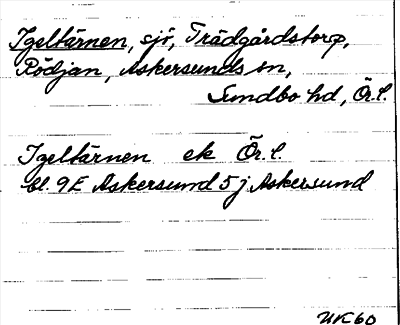 Igeltärnen, sjö, Trädgårdstorp,
Rödjan, Askersunds sn,
Sundbo hd, Ör. l.
Igeltärnen ek Ör. l.
bl. 9E Askersund 5 j Askersund
UK 60